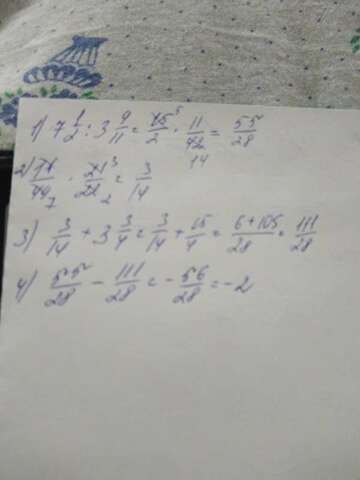 1) 7 1/2 : 3 9/11 = 15⁵/2 · 11/42 14 = 55/28
2) 11/49 7 · 21³/22 2 = 3/14
3) 3/14 + 3 3/4 = 3/14 + 15/4 = 6+105/28 = 111/28
4) 55/28 - 111/28 = - 56/28 = -2